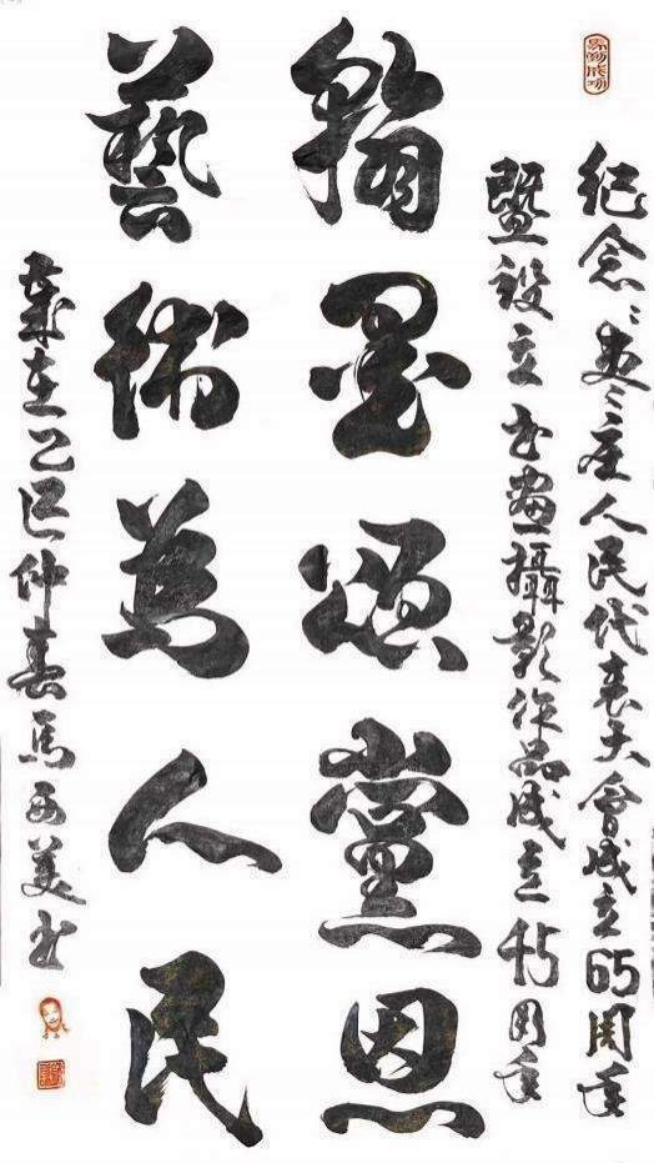 纪念枣庄人民代表大會成立65周年
暨設立书畫攝影作品成立周年
翰墨頌黨恩
藝術為人民
歲在乙巳仲春馬西美书